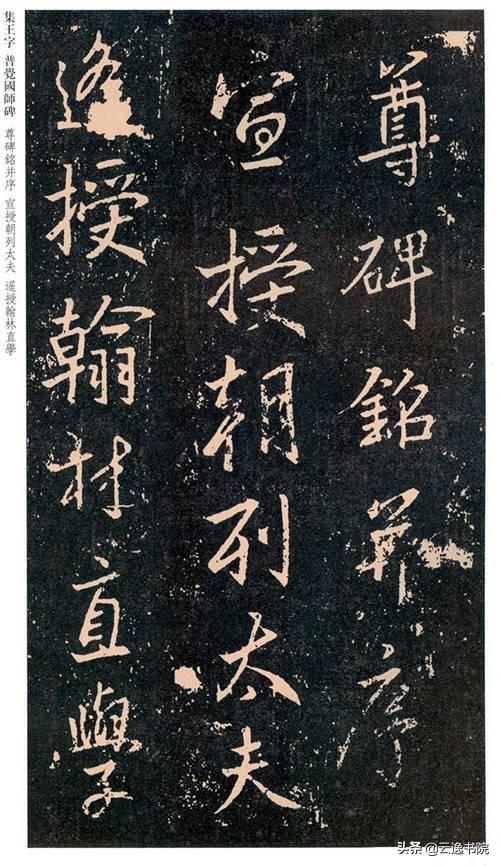 尊碑銘并序
宣授朝列太夫
遥授翰林直學
集王字 普覺國師碑 尊碑銘并序 宣授朝列太夫 遥授翰林直學
头条@云逸书院